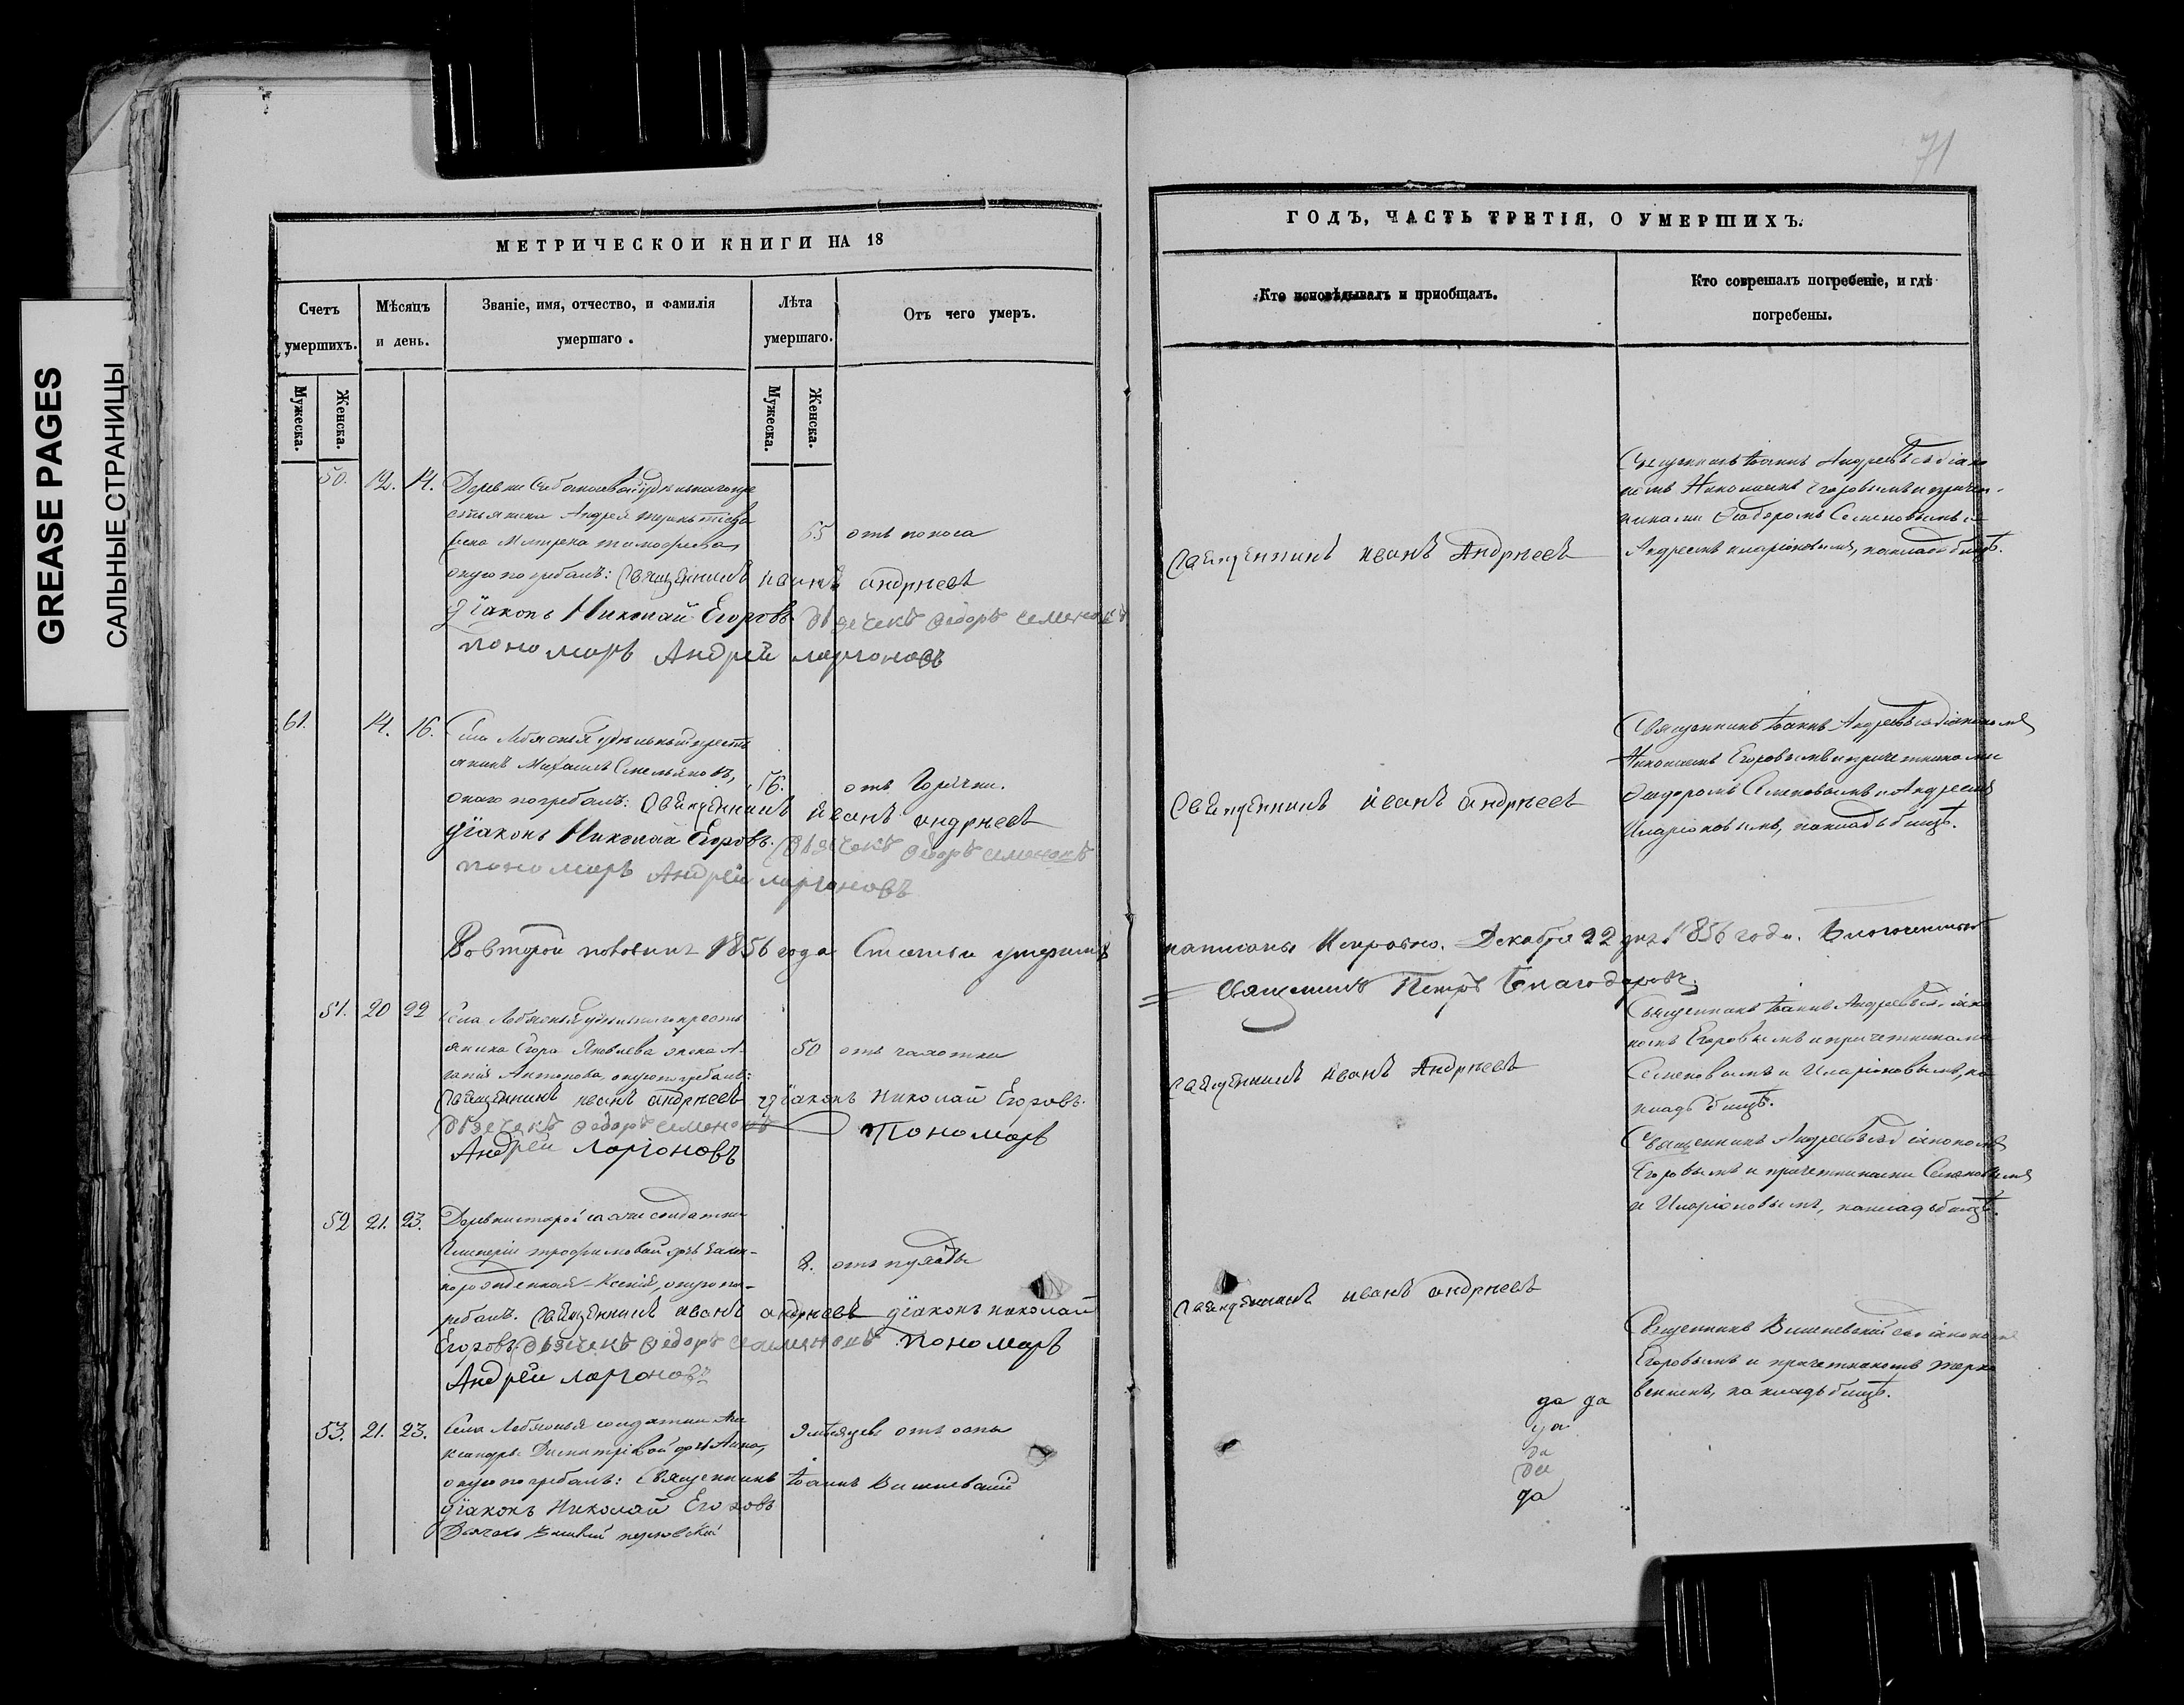 GREASE PAGES
САЛЬНЫЕ СТРАНИЦЫ
71
МЕТРИЧЕСКОЙ КНИГИ НА 18
Счетъ умершихъ.
Мѣсяцъ и день.
Званіе, имя, отчество, и фамилія умершаго.
Лѣта умершаго.
Отъ чего умеръ.
Мужеска.
Женска.
Мужеска.
Женска.
50. 12. 14. Деревни удѣльнаго кре
стьянина Андрея Терентіева
жена Тимофеева, 65 отъ поноса
оную погребалъ: Священникъ Иванъ Андрѣевъ
Діаконъ Николай Егоровъ. Дьячекъ Федоръ Семеновъ
пономарь Андрей Ларионовъ
61. 14. 16. Села Лебяжья удѣльный кресть
янинъ Михаилъ Емельяновъ, 56. отъ Горячки.
онаго погребалъ: Священникъ Иванъ Андрѣевъ
Діаконъ Николай Егоровъ. Дьячекъ Федоръ Семеновъ
пономарь Андрей Ларионовъ
Во второй половинѣ 1856 года Статьи умершихъ
51. 20 22 Села Лебяжья удѣльнаго кресть
янина Егора Яковлева жена А-
гапія Антонова, оную погребалъ: 50 отъ чахотки
Священникъ Иванъ Андрѣевъ Діаконъ Николай Егоровъ.
Дьячекъ Федоръ Семеновъ Пономарь
Андрей Ларионовъ
52 21. 23. Деревни старой солдатки
Трофимовой дочь закон-
норожденная Ксенія, оную пог-
ребалъ. Священникъ Иванъ Андрѣевъ Діаконъ Николай
Егоровъ Дьячекъ Федоръ Семеновъ пономарь
Андрей Ларионовъ
53. 21. 23. Села Лебяжья солдатки Але
ксандры Димитріевой дочь Анна, 9 мѣсяцевъ отъ оспы
оную погребалъ: Священникъ Іоаннъ Вишневскій
Діаконъ Николай Егоровъ
ГОДЪ, ЧАСТЬ ТРЕТІЯ, О УМЕРШИХЪ.
Кто исповѣдывалъ и пріобщалъ.
Кто совершалъ погребеніе, и гдѣ погребены.
Священникъ Иванъ Андрѣевъ
Священникъ Іоаннъ Андреевъ съ діако
номъ Николаемъ Егоровымъ и причет-
никами Ѳеодоромъ Семеновымъ и
Андреемъ Иларіоновымъ, на кладбищѣ.
Священникъ Иванъ Андрѣевъ
Священникъ Іоаннъ Андреевъ съ діакономъ
Николаемъ Егоровымъ и причетниками
Ѳеодоромъ Семеновымъ и Андреемъ
Иларіоновымъ, на кладбищѣ.
написаны Исправно. Декабря 22 дня 1856 года. Благочинный
Священникъ Петръ Благодаровъ.
Священникъ Иванъ Андрѣевъ
Священникъ Іоаннъ Андреевъ съ діако
номъ Егоровымъ и причетниками
Семеновымъ и Иларіоновымъ, на
кладбищѣ.
Священникъ Иванъ Андрѣевъ
Священникъ Андреевъ съ діакономъ
Егоровымъ и причетниками Семеновымъ
и Иларіоновымъ, на кладбищѣ.
Священникъ Вишневскій съ діакономъ
Егоровымъ и причетникомъ
на кладбищѣ.
да да
да
да
да
да